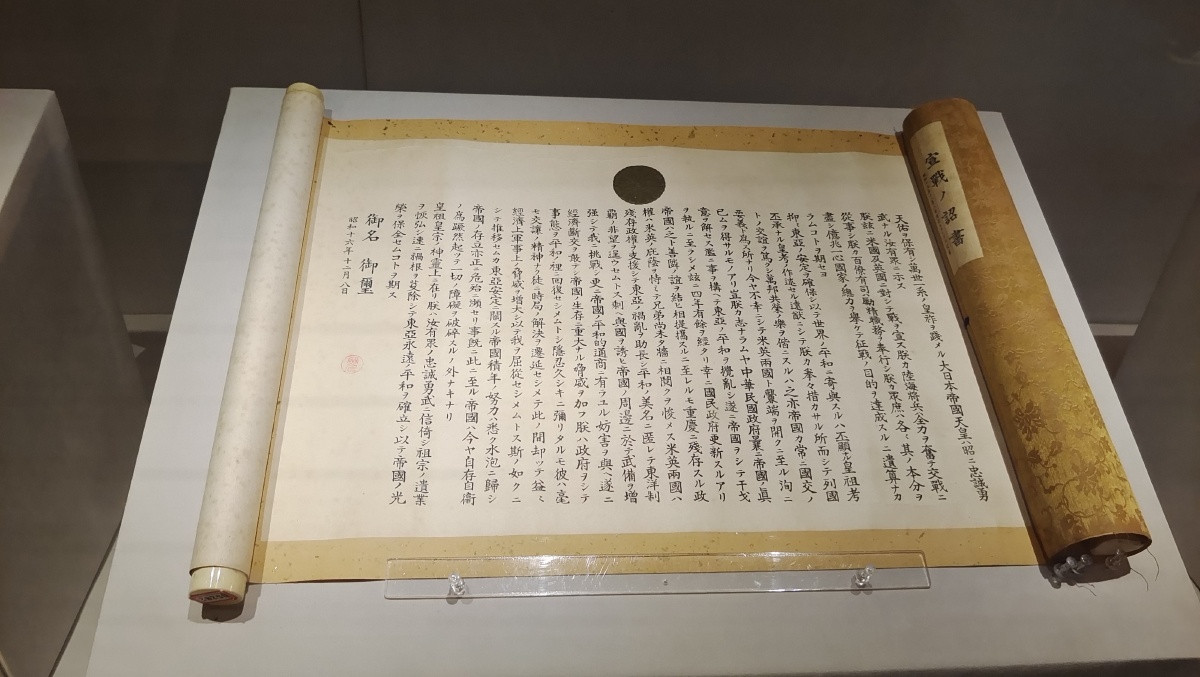 宣戰ノ詔書
天佑ヲ保有シ萬世一系ノ皇祚ヲ踐メル大日本帝國天皇ハ昭ニ忠誠勇
武ナル汝有衆ニ示ス
朕茲ニ米國及英國ニ對シテ戰ヲ宣ス朕カ陸海將兵ハ全力ヲ奮テ交戰ニ
從事シ朕カ百僚有司ハ勵精職務ヲ奉行シ朕カ衆庶ハ各〻其ノ本分ヲ
盡シ億兆一心國家ノ總力ヲ擧ケテ征戰ノ目的ヲ達成スルニ遺算ナカ
ラムコトヲ期セヨ
抑〻東亞ノ安定ヲ確保シ以テ世界ノ平和ニ寄與スルハ丕顯ナル皇祖考
丕承ナル皇考ノ作述セル遠猷ニシテ朕カ拳々措カサル所而シテ列國
トノ交誼ヲ篤クシ萬邦共榮ノ樂ヲ偕ニスルハ之亦帝國カ常ニ國交ノ
要義ト爲ス所ナリ今ヤ不幸ニシテ米英兩國ト釁端ヲ開クニ至ル洵ニ
已ムヲ得サルモノアリ豈朕カ志ナラムヤ中華民國政府曩ニ帝國ノ眞
意ヲ解セス濫ニ事ヲ構ヘテ東亞ノ平和ヲ攪亂シ遂ニ帝國ヲシテ干戈
ヲ執ルニ至ラシメ茲ニ四年有餘ヲ經タリ幸ニ國民政府更新スルアリ
帝國ハ之ト善隣ノ誼ヲ結ヒ相提攜スルニ至レルモ重慶ニ殘存スル政
權ハ米英ノ庇蔭ヲ恃ミテ兄弟尚未タ牆ニ相鬩クヲ悛メス米英兩國ハ
殘存政權ヲ支援シテ東亞ノ禍亂ヲ助長シ平和ノ美名ニ匿レテ東洋制
覇ノ非望ヲ逞ウセムトス剩ヘ與國ヲ誘ヒ帝國ノ周邊ニ於テ武備ヲ增
强シテ我ニ挑戰シ更ニ帝國ノ平和的通商ニ有ラユル妨害ヲ與ヘ遂ニ
經濟斷交ヲ敢テシ帝國ノ生存ニ重大ナル脅威ヲ加フ朕ハ政府ヲシテ
事態ヲ平和ノ裡ニ回復セシメムトシ隱忍久シキニ彌リタルモ彼ハ毫
モ交讓ノ精神ナク徒ニ時局ノ解決ヲ遷延セシメテ此ノ間却ツテ益〻
經濟上軍事上ノ脅威ヲ增大シ以テ我ヲ屈從セシメムトス斯ノ如クニ
シテ推移セムカ東亞安定ニ關スル帝國積年ノ努力ハ悉ク水泡ニ歸シ
帝國ノ存立亦正ニ危殆ニ瀕セリ事既ニ此ニ至ル帝國ハ今ヤ自存自衞
ノ爲蹶然起ツテ一切ノ障礙ヲ破碎スルノ外ナキナリ
皇祖皇宗ノ神靈上ニ在リ朕ハ汝有衆ノ忠誠勇武ニ信倚シ祖宗ノ遺業
ヲ恢弘シ速ニ禍根ヲ芟除シテ東亞永遠ノ平和ヲ確立シ以テ帝國ノ光
榮ヲ保全セムコトヲ期ス
御名 御璽
昭和十六年十二月八日